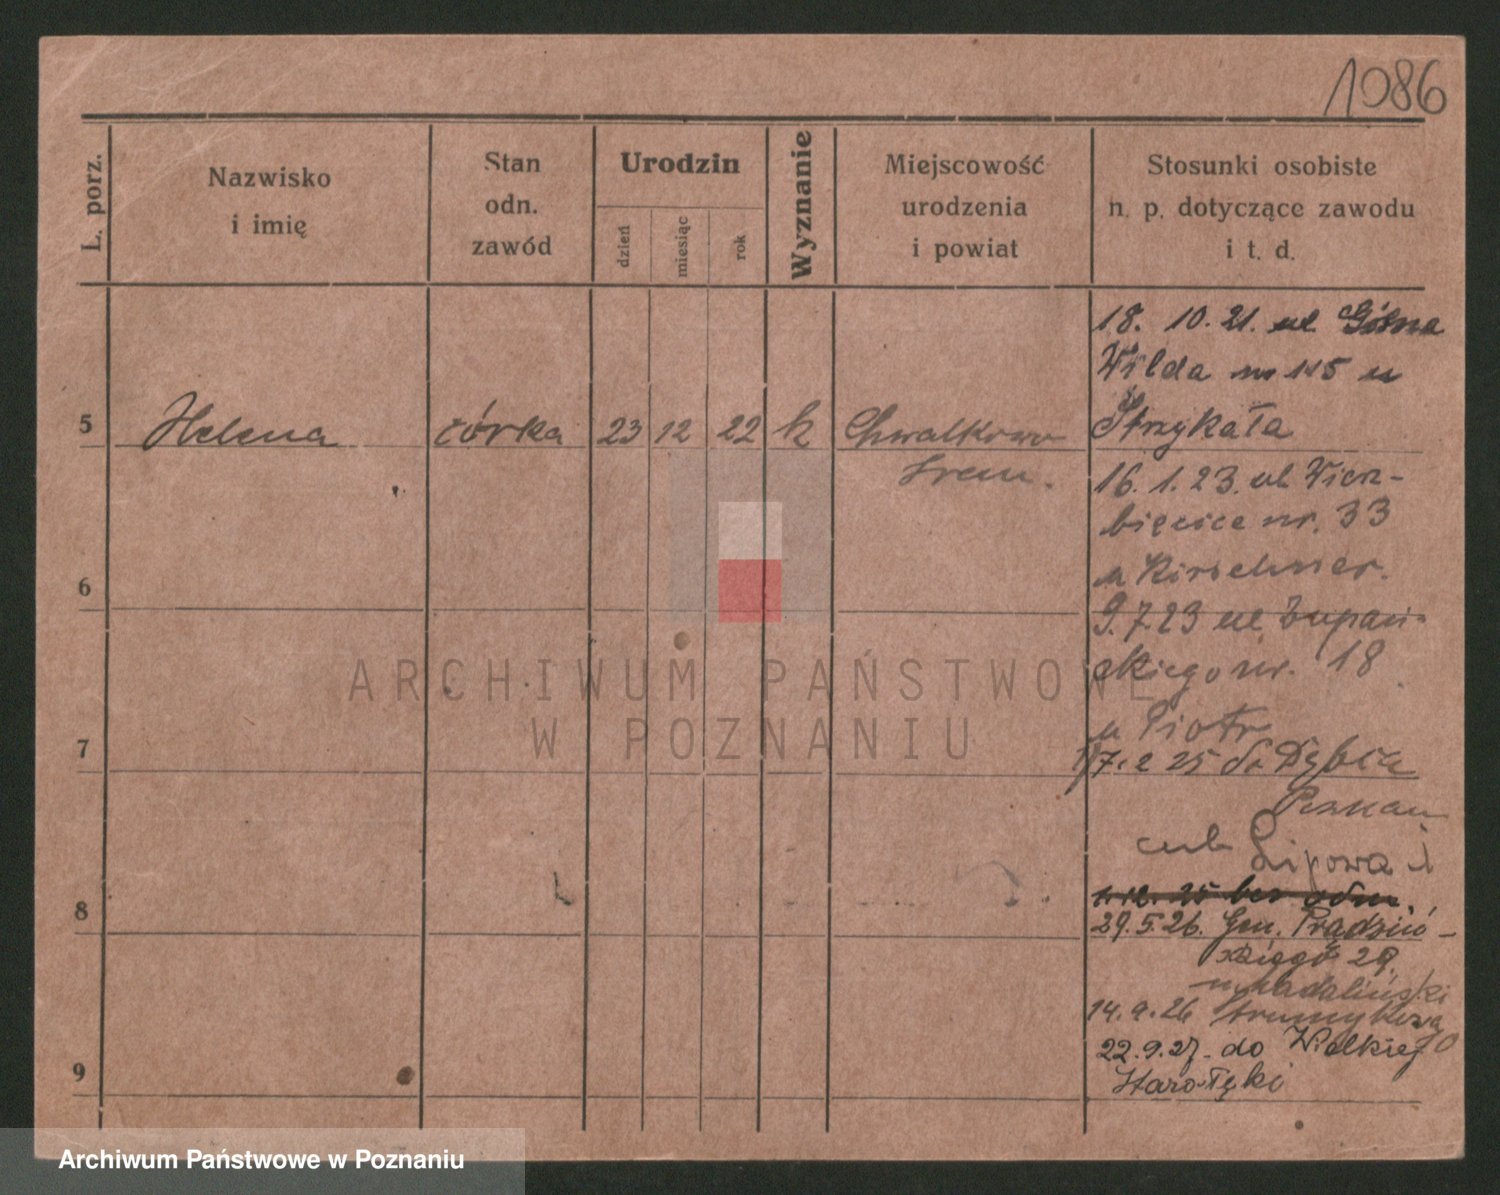 1086
L. porz.
Nazwisko
i imię
Stan
odn.
zawód
Urodzin
dzień
miesiąc
rok
Wyznanie
Miejscowość
urodzenia
i powiat
Stosunki osobiste
n. p. dotyczące zawodu
i t. d.
18. 10. 21. ul Górna
Wilda nr 145 u
Strzykała
5 Helena córka 23 12 22 k Chwalkowo
Srem.
16. 1. 23. ul. Wierz-
bięcice nr. 33
u Kirschner.
6
9.7.23 ul Żupań-
skiego nr. 18
u Piotr
7
17.2 25 do Dębiec
Poznań
Lipowa
8
1.12.25 bez odm.
29.5.26. Gen. Prądzyń-
skiego 29
u Madaliński
14.9.26 Strumykowa
22.9.27. do Wielkiej
Starołęki
9
ARCHIWUM PAŃSTWOWE
W POZNANIU
Archiwum Państwowe w Poznaniu